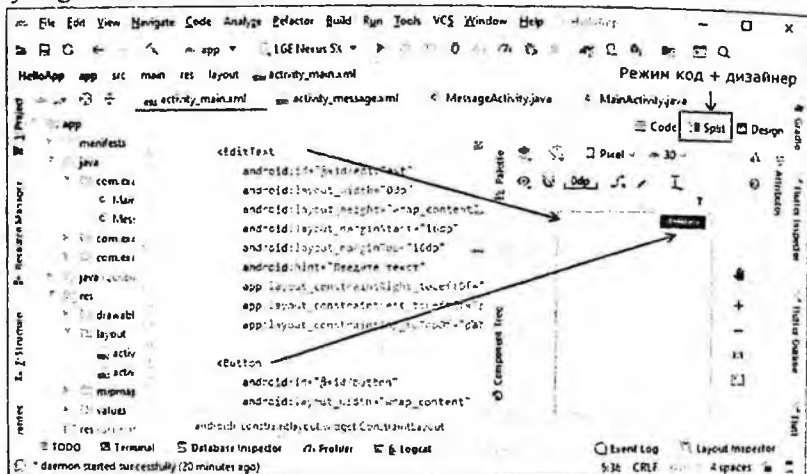 File Edit View Navigate Code Analyze Refactor Build Run Tools VCS Window Help
app LGE Nexus 5X
HelloApp app src main res layout activity_main.xml
Режим код + дизайнер
activity_main.xml activity_message.xml MessageActivity.java MainActivity.java
Code Split Design
1: Project
Resource Manager
Z: Structure
app
manifests
java
com.exa
Mair
Mess
com.exa
com.exa
java
res
drawabl
layout
activ
activ
mipmap
values
res
<EditText
android:id="@+id/editText"
android:layout_width="0dp"
android:layout_height="wrap_content"
android:layout_marginStart="16dp"
android:layout_marginTop="16dp"
android:hint="Введите текст"
app:layout_constraintRight_toLeftOf="
app:layout_constraintLeft_toLeftOf="p
app:layout_constraintTop_toTopOf="par
<Button
android:id="@+id/button"
android:layout_width="wrap_content"
androidx.constraintlayout.widget.ConstraintLayout
Palette
Component Tree
Pixel 30
0dp
1:1
Gradle
Attributes
Flutter Inspector
Flutter Outline
TODO Terminal Database Inspector Profiler 6: Logcat Event Log Layout Inspector
daemon started successfully (20 minutes ago) 5:36 CRLF 4 spaces